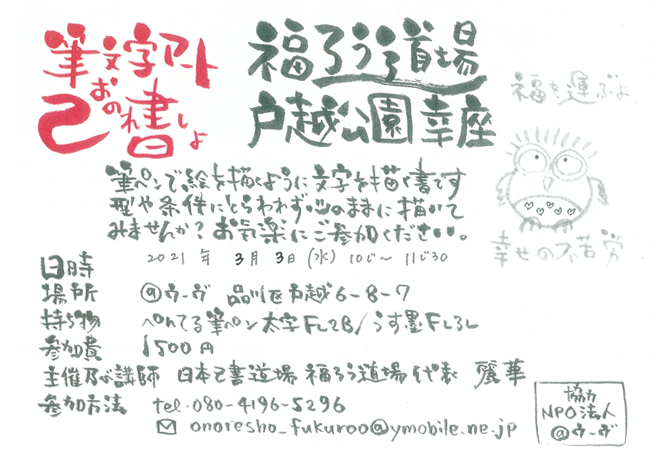 筆文字アート
己書
おのれしょ
福ろう道場
戸越公園幸座
福を運ぶよ
幸せの不苦労
筆ペンで絵を描くように文字を描く書です
型や条件にとらわれず心のままに描いて
みませんか？お気楽にご参加ください。
日時 2021年 3月 3日(水) 10じ〜11じ30
場所 @ウーヴ 品川区戸越6-8-7
持ち物 ぺんてる筆ペン太字FL2B/うす墨FL3L
参加費 1500円
主催及び講師 日本己書道場 福ろう道場代表 麗華
参加方法 tel・080-4196-5296
onoresho_fukuroo@ymobile.ne.jp
協力
NPO法人
@ウーヴ